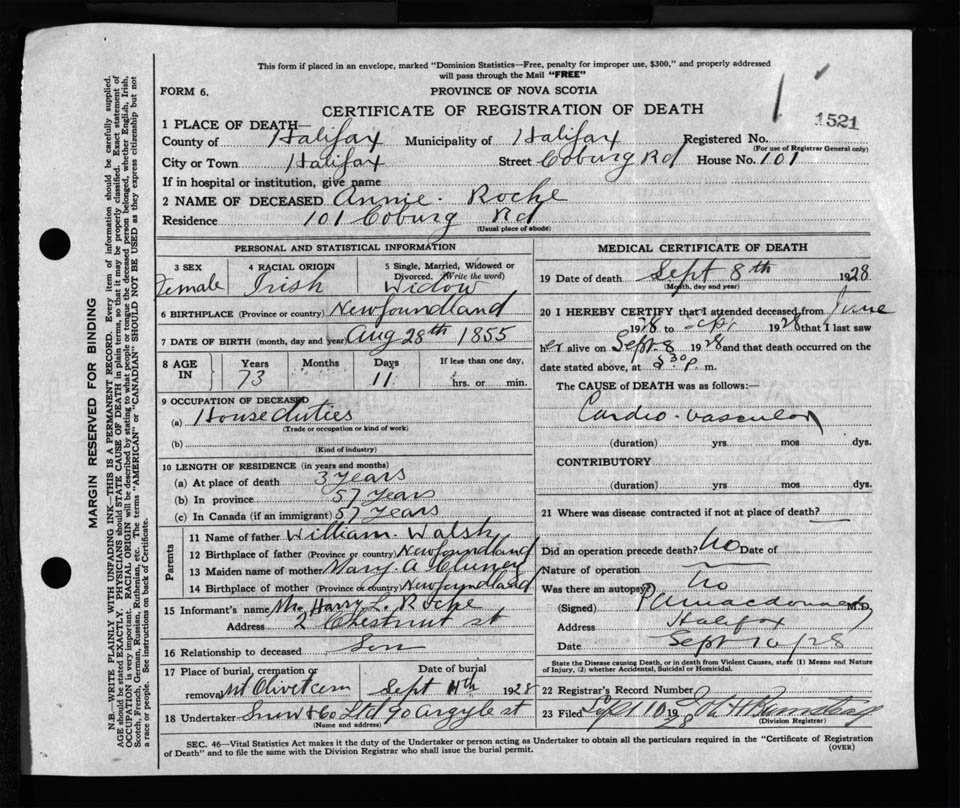 This form if placed in an envelope, marked "Dominion Statistics—Free, penalty for improper use, $300," and properly addressed
will pass through the Mail "FREE"
FORM 6.
PROVINCE OF NOVA SCOTIA
1521
CERTIFICATE OF REGISTRATION OF DEATH
1 PLACE OF DEATH—
County of Halifax Municipality of Halifax Registered No.
(For use of Registrar General only)
City or Town Halifax Street Coburg Rd House No. 101
If in hospital or institution, give name
2 NAME OF DECEASED Annie Roche
Residence 101 Coburg Rd
(Usual place of abode)
PERSONAL AND STATISTICAL INFORMATION
3 SEX Female
4 RACIAL ORIGIN Irish
5 Single, Married, Widowed or
Divorced. (Write the word)
Widow
6 BIRTHPLACE (Province or country) Newfoundland
7 DATE OF BIRTH (month, day and year) Aug 28th 1855
8 AGE IN Years 73 Months Days 11 If less than one day,
hrs. or min.
9 OCCUPATION OF DECEASED
(a) House duties
(Trade or occupation or kind of work)
(b)
(Kind of industry)
10 LENGTH OF RESIDENCE (in years and months)
(a) At place of death 3 years
(b) In province 57 years
(c) In Canada (if an immigrant) 57 years
Parents
11 Name of father William Walsh
12 Birthplace of father (Province or country) Newfoundland
13 Maiden name of mother Mary A
14 Birthplace of mother (Province or country) Newfoundland
15 Informant's name Mr Harry L. Roche
Address 2 Chestnut st
16 Relationship to deceased Son
17 Place of burial, cremation or
removal Mt Olivet cem
Date of burial
Sept 11th 1928
18 Undertaker Snow & Co Ltd 90 Argyle st
(Name and address)
MEDICAL CERTIFICATE OF DEATH
19 Date of death Sept 8th 1928
(Month, day and year)
20 I HEREBY CERTIFY that I attended deceased from June
1928 to 1928 that I last saw
her alive on Sept 8 1928 and that death occurred on the
date stated above, at 30 p. m.
The CAUSE of DEATH was as follows:
Cardio-vascular
(duration) yrs mos dys.
CONTRIBUTORY
(duration) yrs mos dys.
21 Where was disease contracted if not at place of death?
Did an operation precede death? No Date of
Nature of operation
Was there an autopsy? no
(Signed) Macdonald M.D.
Address Halifax
Date Sept 10/28
State the Disease causing Death, or in death from Violent Causes, state (1) Means and Nature
of Injury, (2) whether Accidental, Suicidal or Homicidal.
22 Registrar's Record Number
23 Filed
(Division Registrar)
SEC. 46—Vital Statistics Act makes it the duty of the Undertaker or person acting as Undertaker to obtain all the particulars required in the "Certificate of Registration
of Death" and to file the same with the Division Registrar who shall issue the burial permit.
(OVER)
MARGIN RESERVED FOR BINDING
N.B.—WRITE PLAINLY WITH UNFADING INK—THIS IS A PERMANENT RECORD. Every item of information should be carefully supplied.
AGE should be stated EXACTLY. PHYSICIANS should STATE CAUSE OF DEATH in plain terms, so that it may be properly classified. Exact statement of
OCCUPATION is very important. RACIAL ORIGIN will be described by stating to what people or tongue the deceased person belonged, whether English, Irish,
Scotch, French, German, Russian, Ruthenian, etc. The terms "AMERICAN" or "CANADIAN" SHOULD NOT BE USED as they express citizenship but not
a race or people. See instructions on back of Certificate.